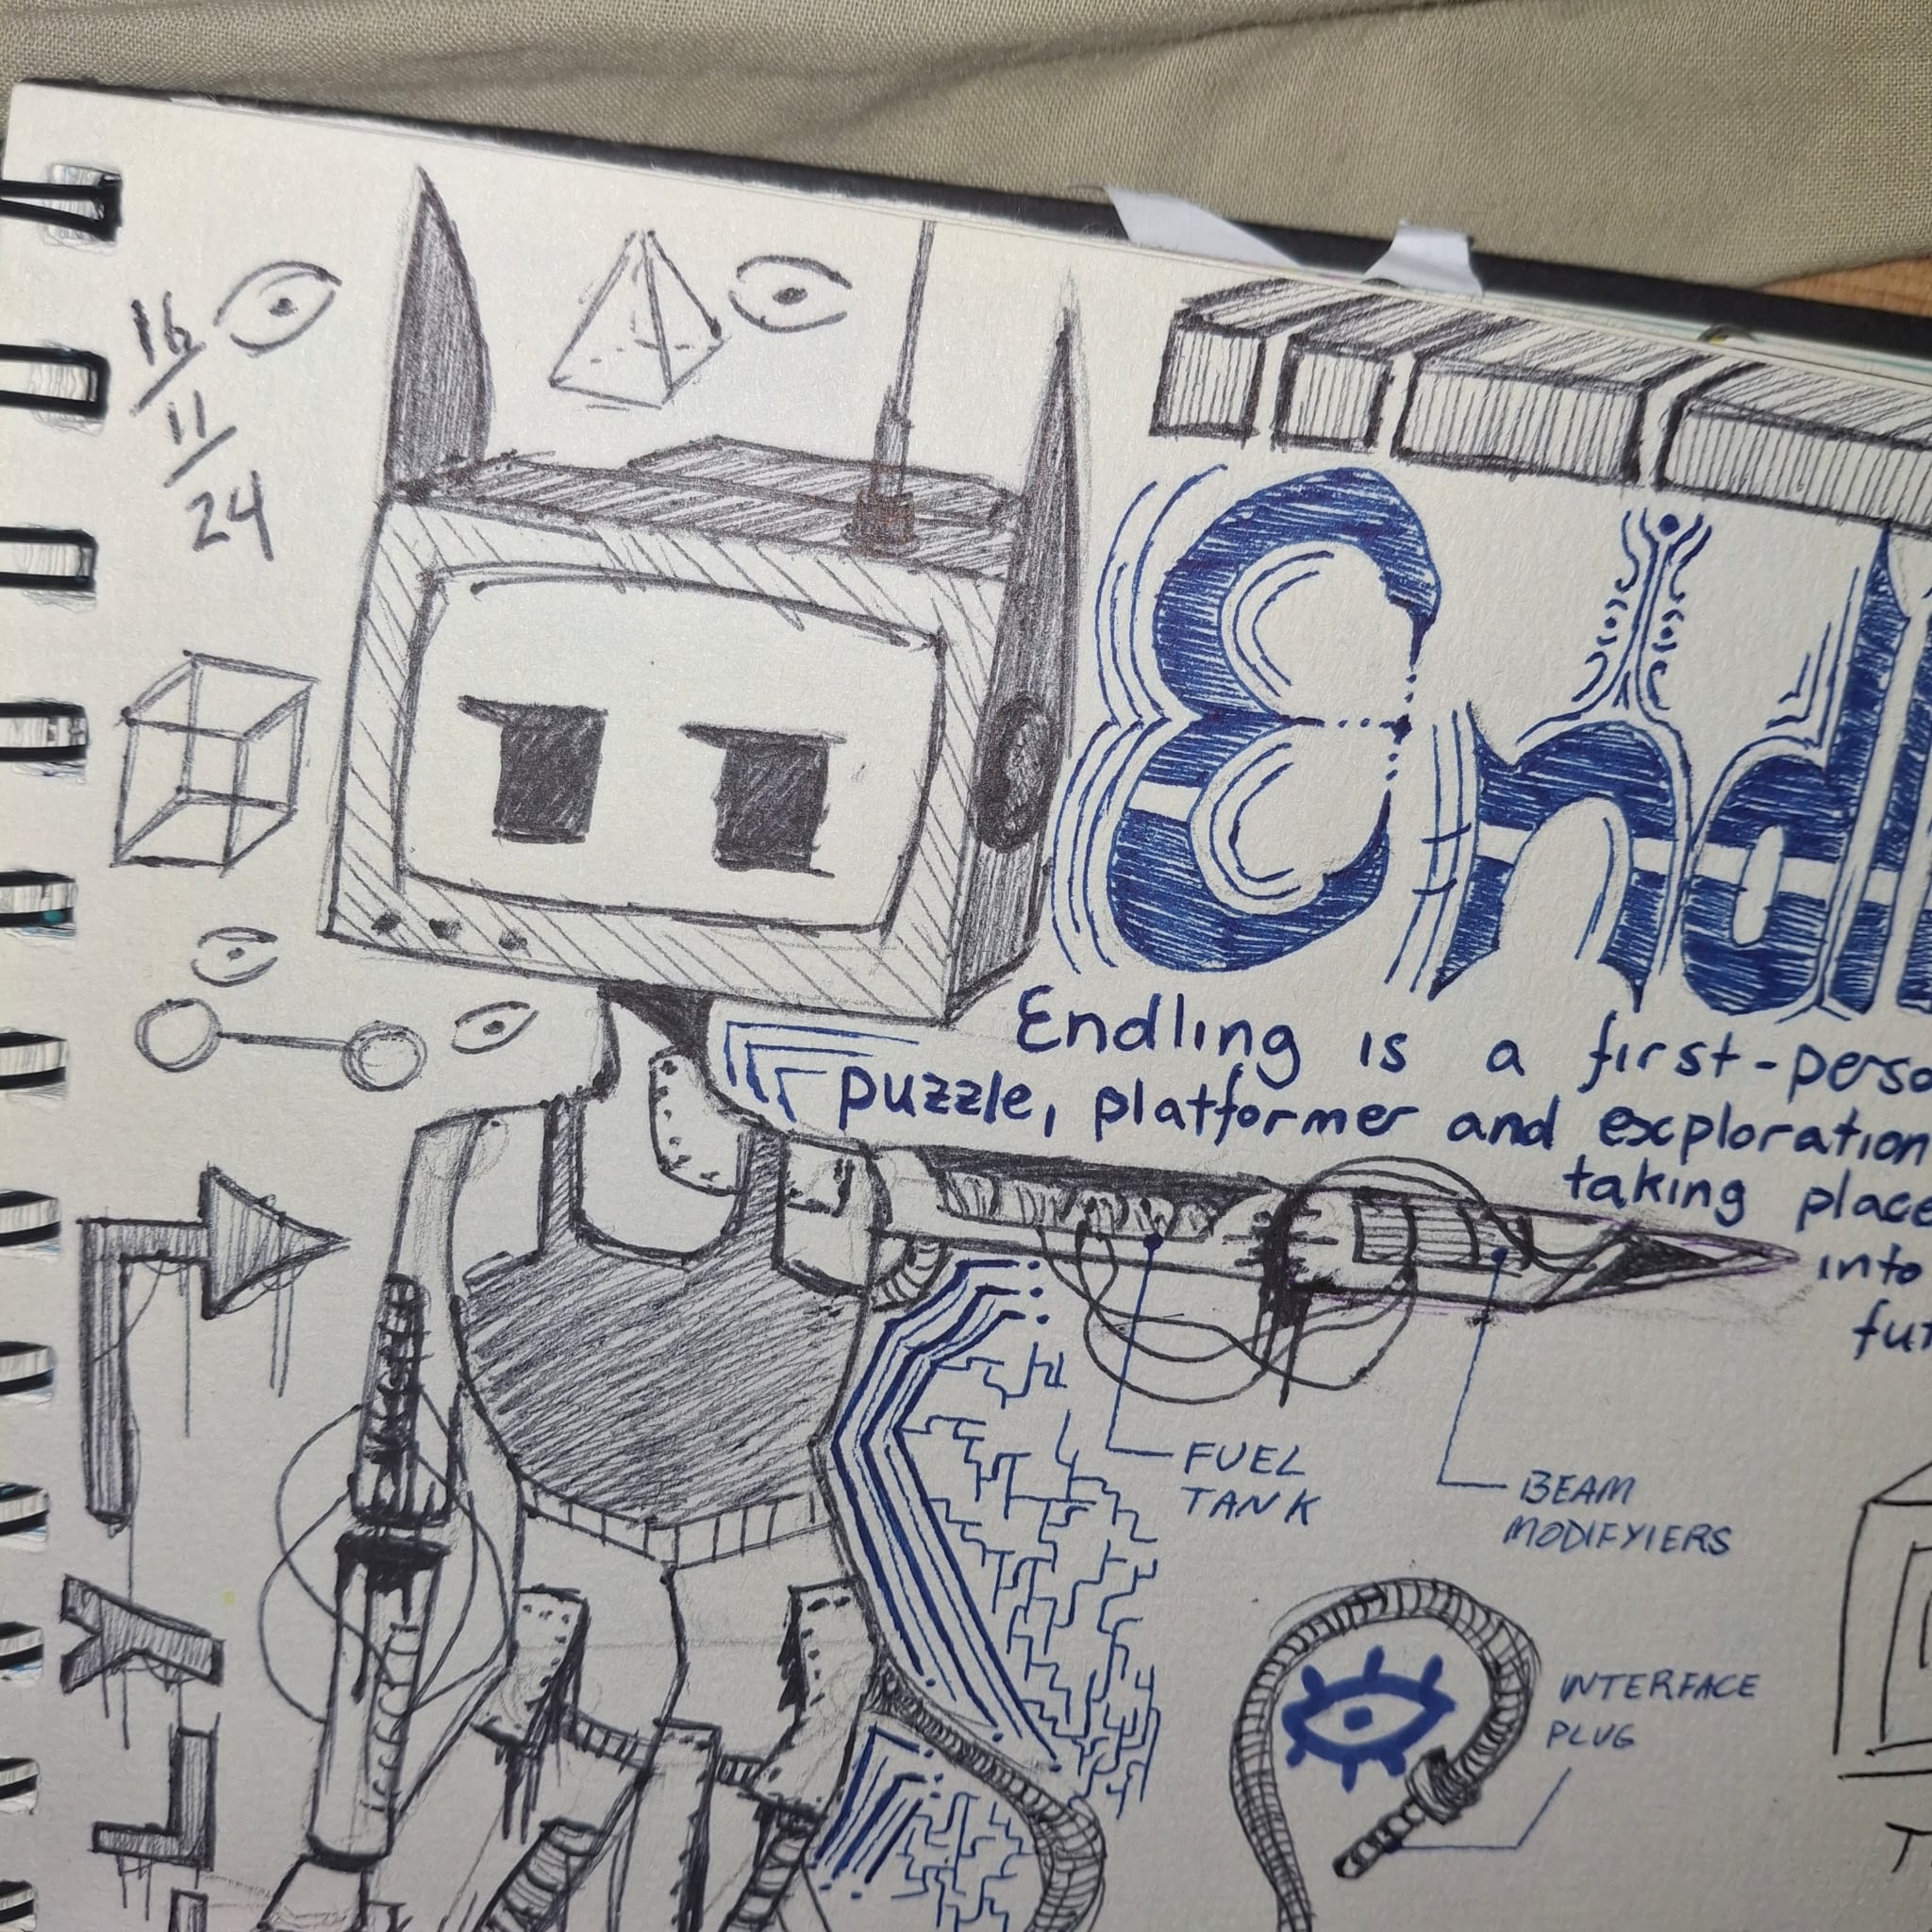 16
11
24
Endl
Endling is a first-perso
puzzle, platformer and exploration
taking place
into
fut
FUEL
TANK
BEAM
MODIFYIERS
INTERFACE
PLUG